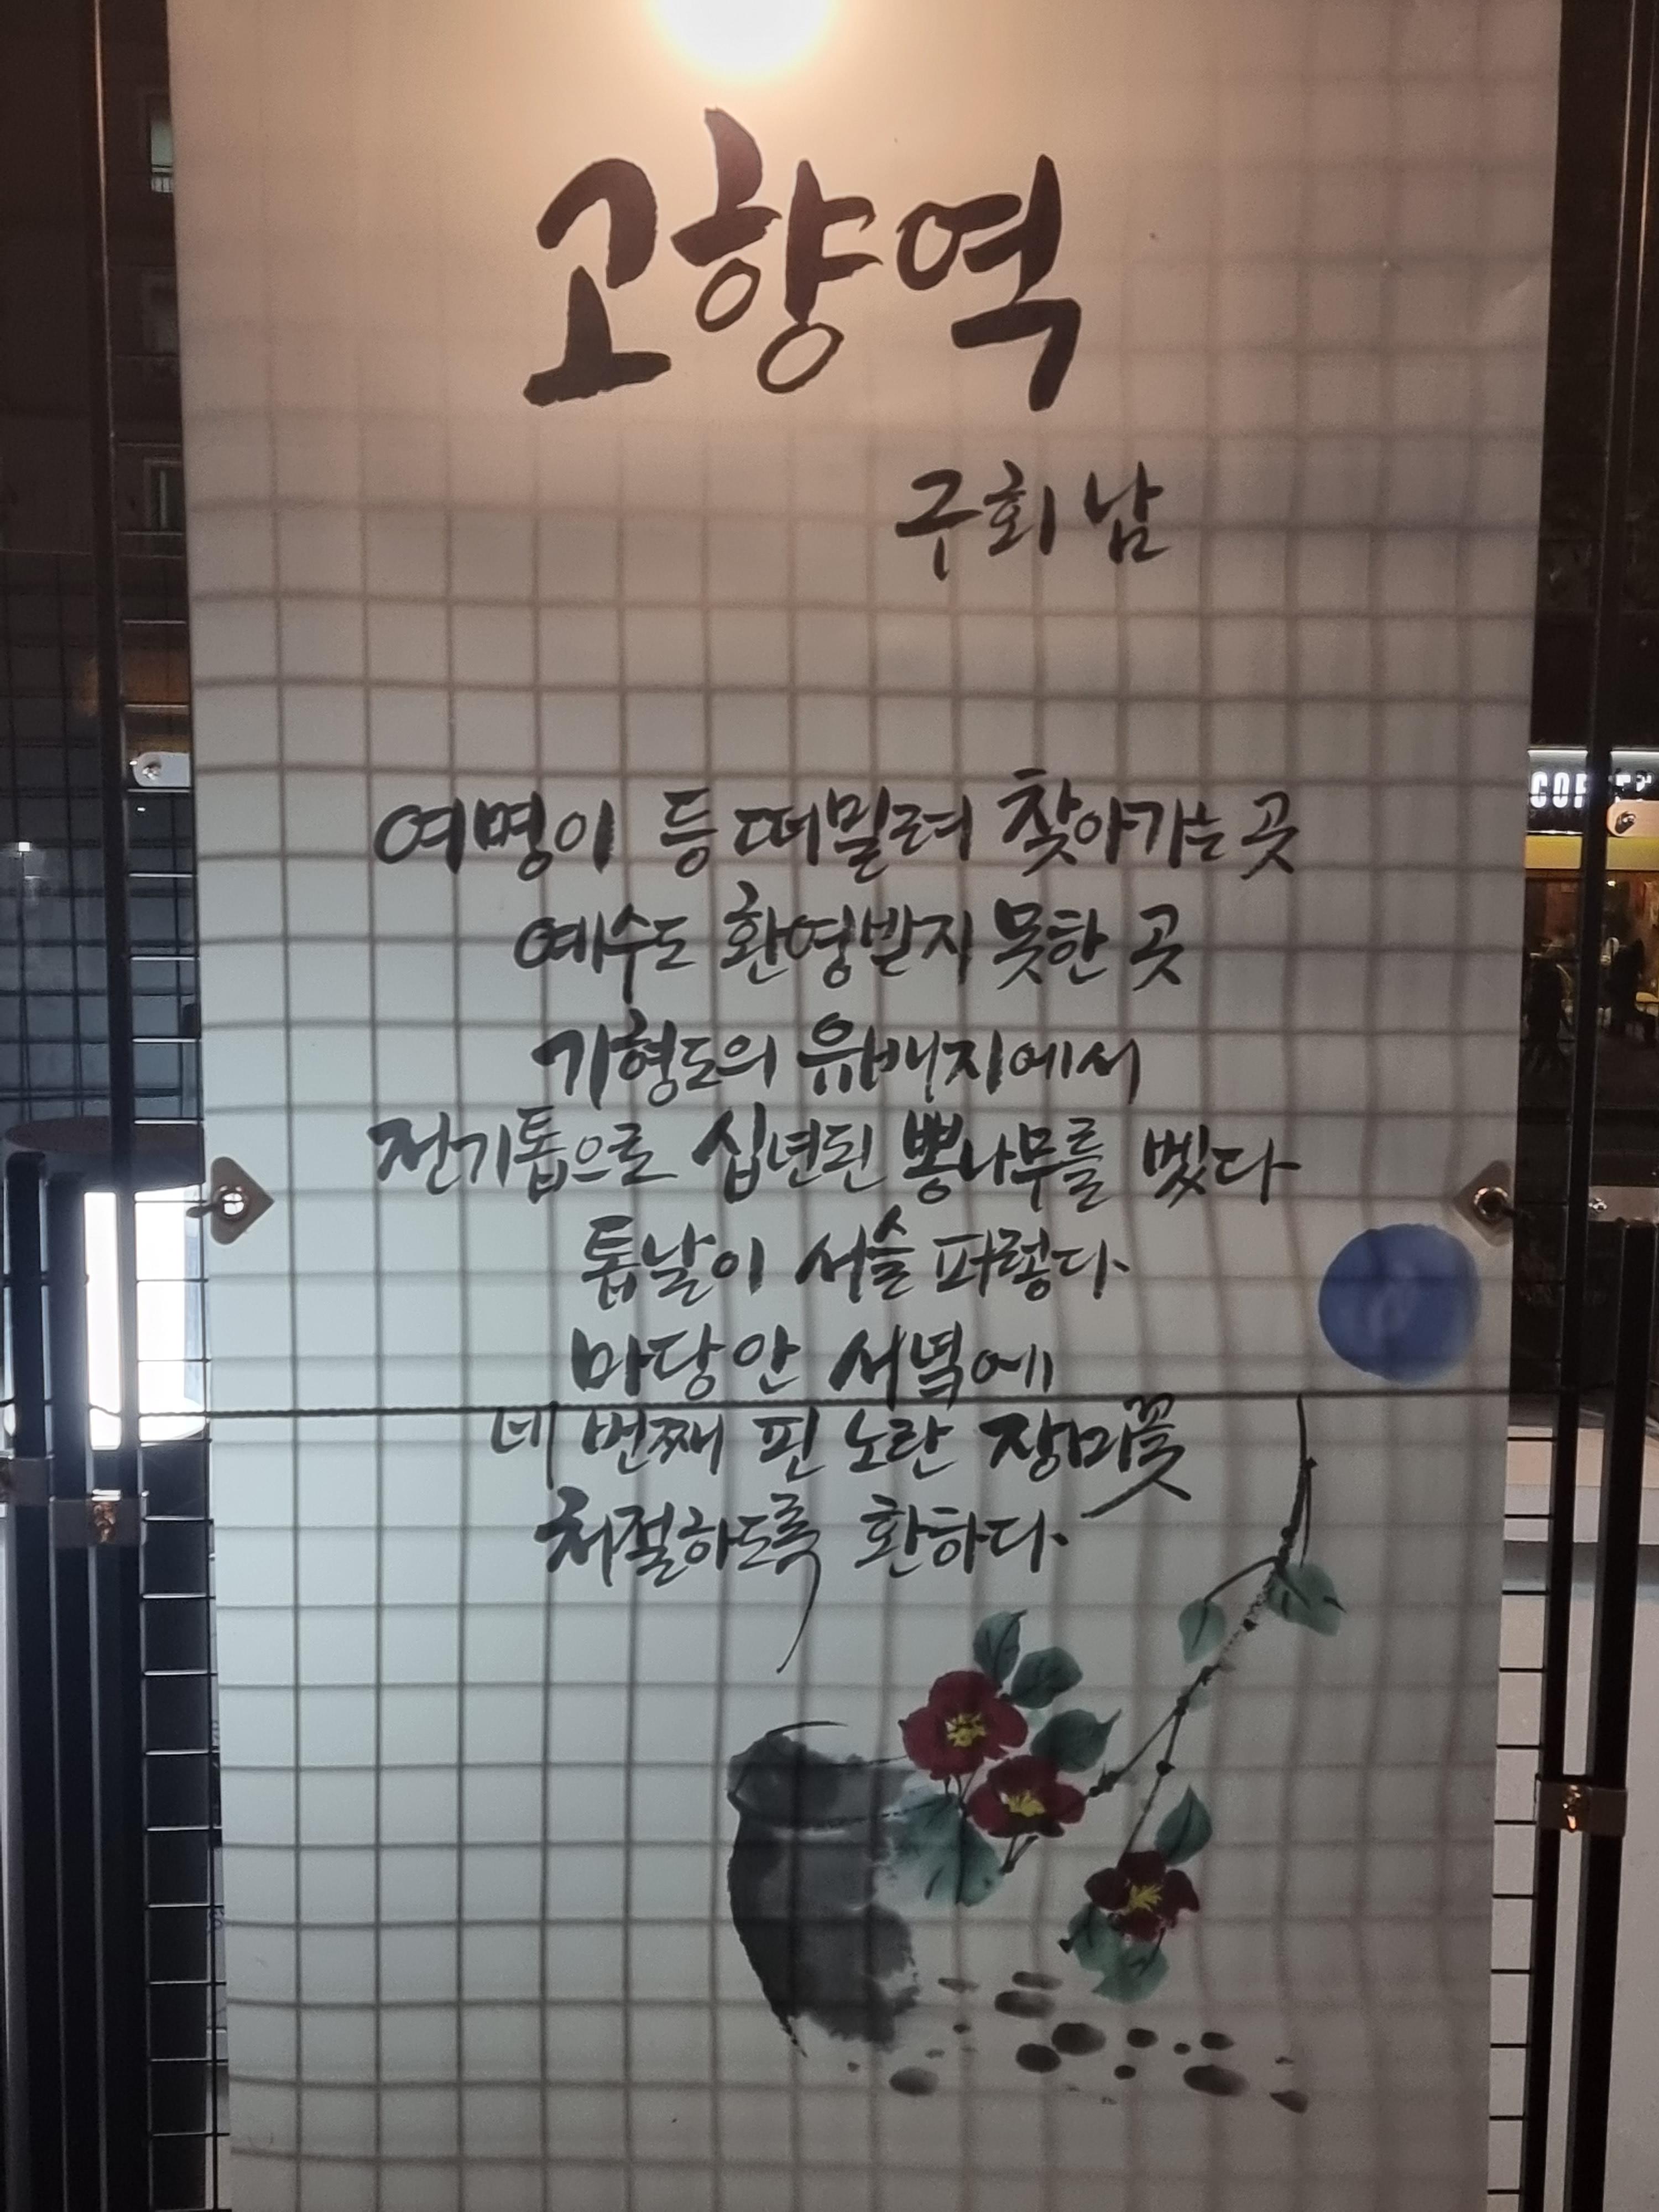 고향역
구회남
여명이 등 떠밀려 찾아가는 곳
예수도 환영받지 못한 곳
기형도의 유배지에서
전기톱으로 십년된 뽕나무를 벴다
톱날이 서슬 퍼렇다
마당 안 서녘에
네 번째 핀 노란 장미꽃
처절하도록 환하다